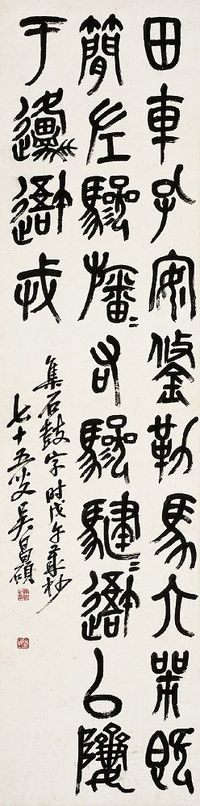 田車孔安鋚勒馬既
簡左驂旛=右驂騝=䢩以隮
于邍䢩戎
集石鼓字時戊午秋杪
七十五叟吳昌碩